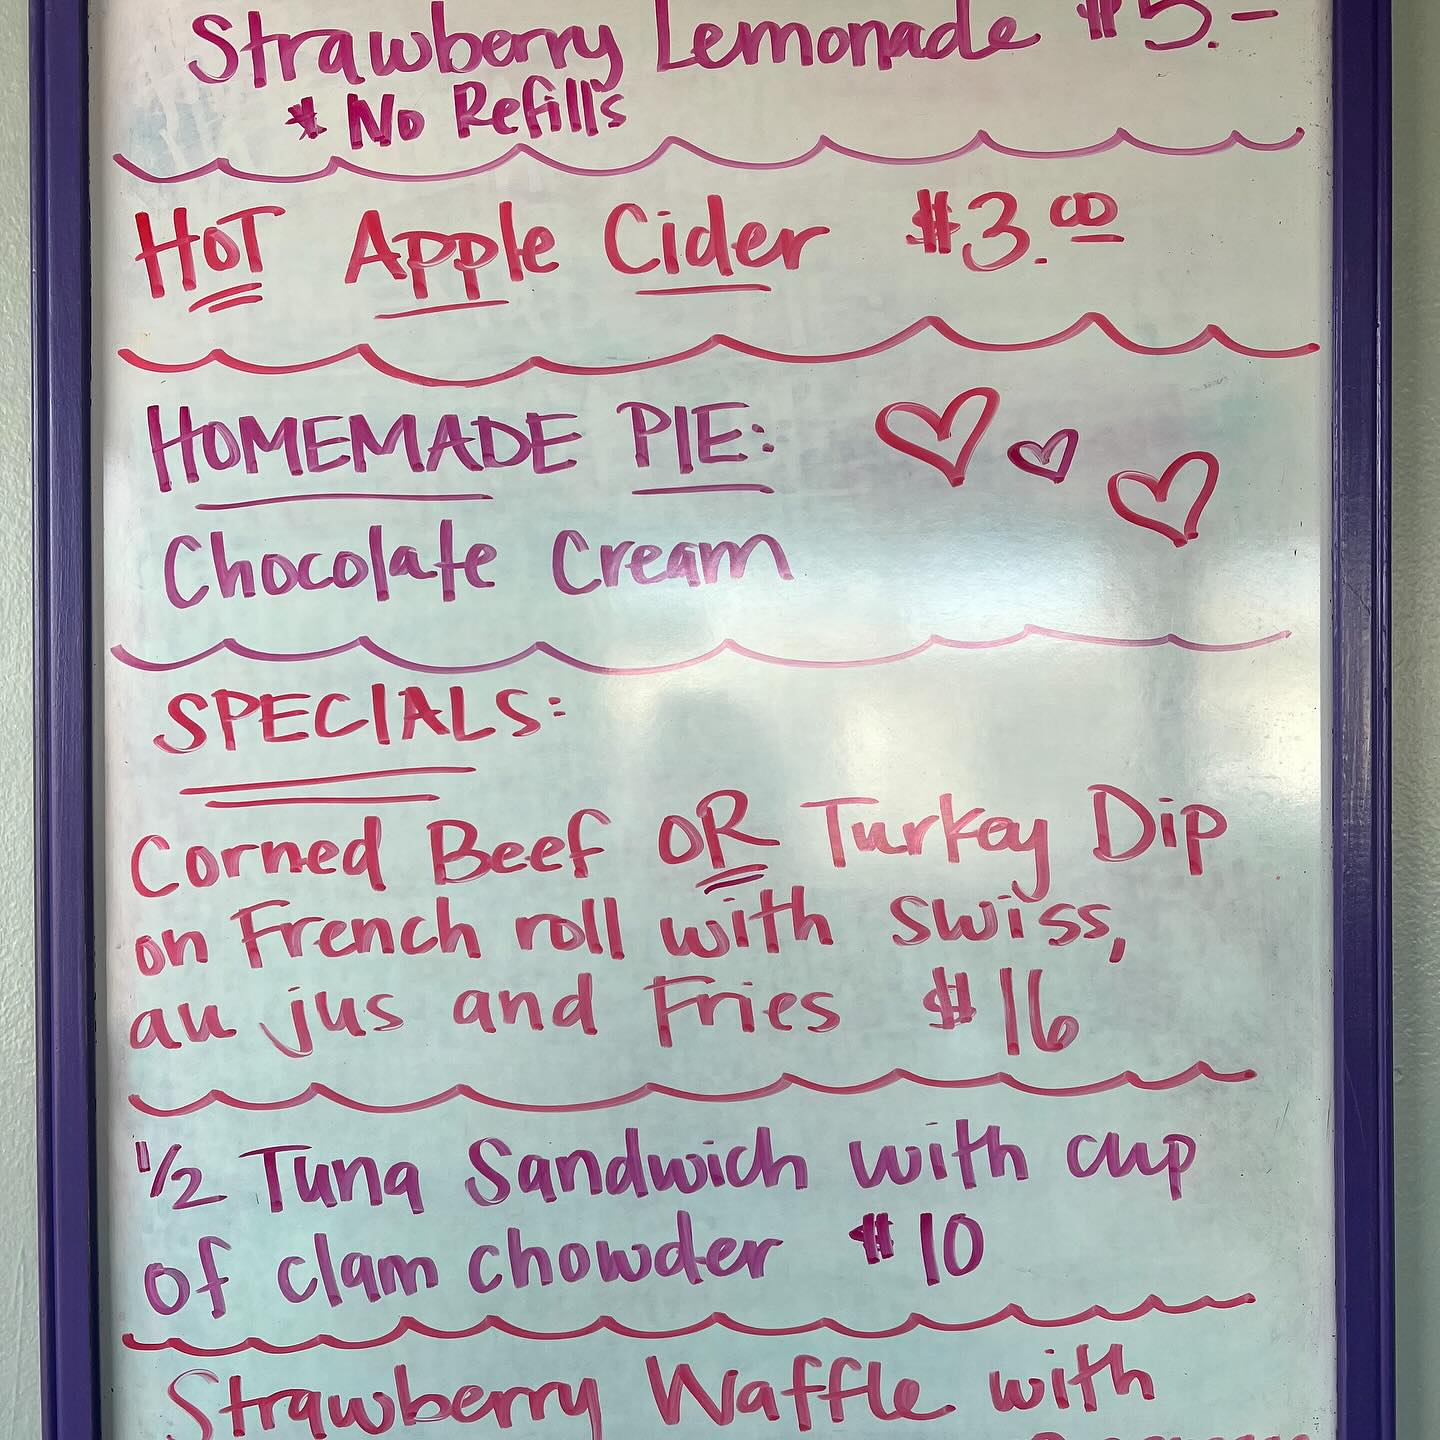 Strawberry Lemonade $5.-
* No Refills
HOT Apple Cider $3.00
HOMEMADE PIE:
Chocolate Cream
SPECIALS:
Corned Beef OR Turkey Dip
on French roll with Swiss,
au jus and Fries $16
1/2 Tuna Sandwich with cup
of clam chowder $10
Strawberry Waffle with